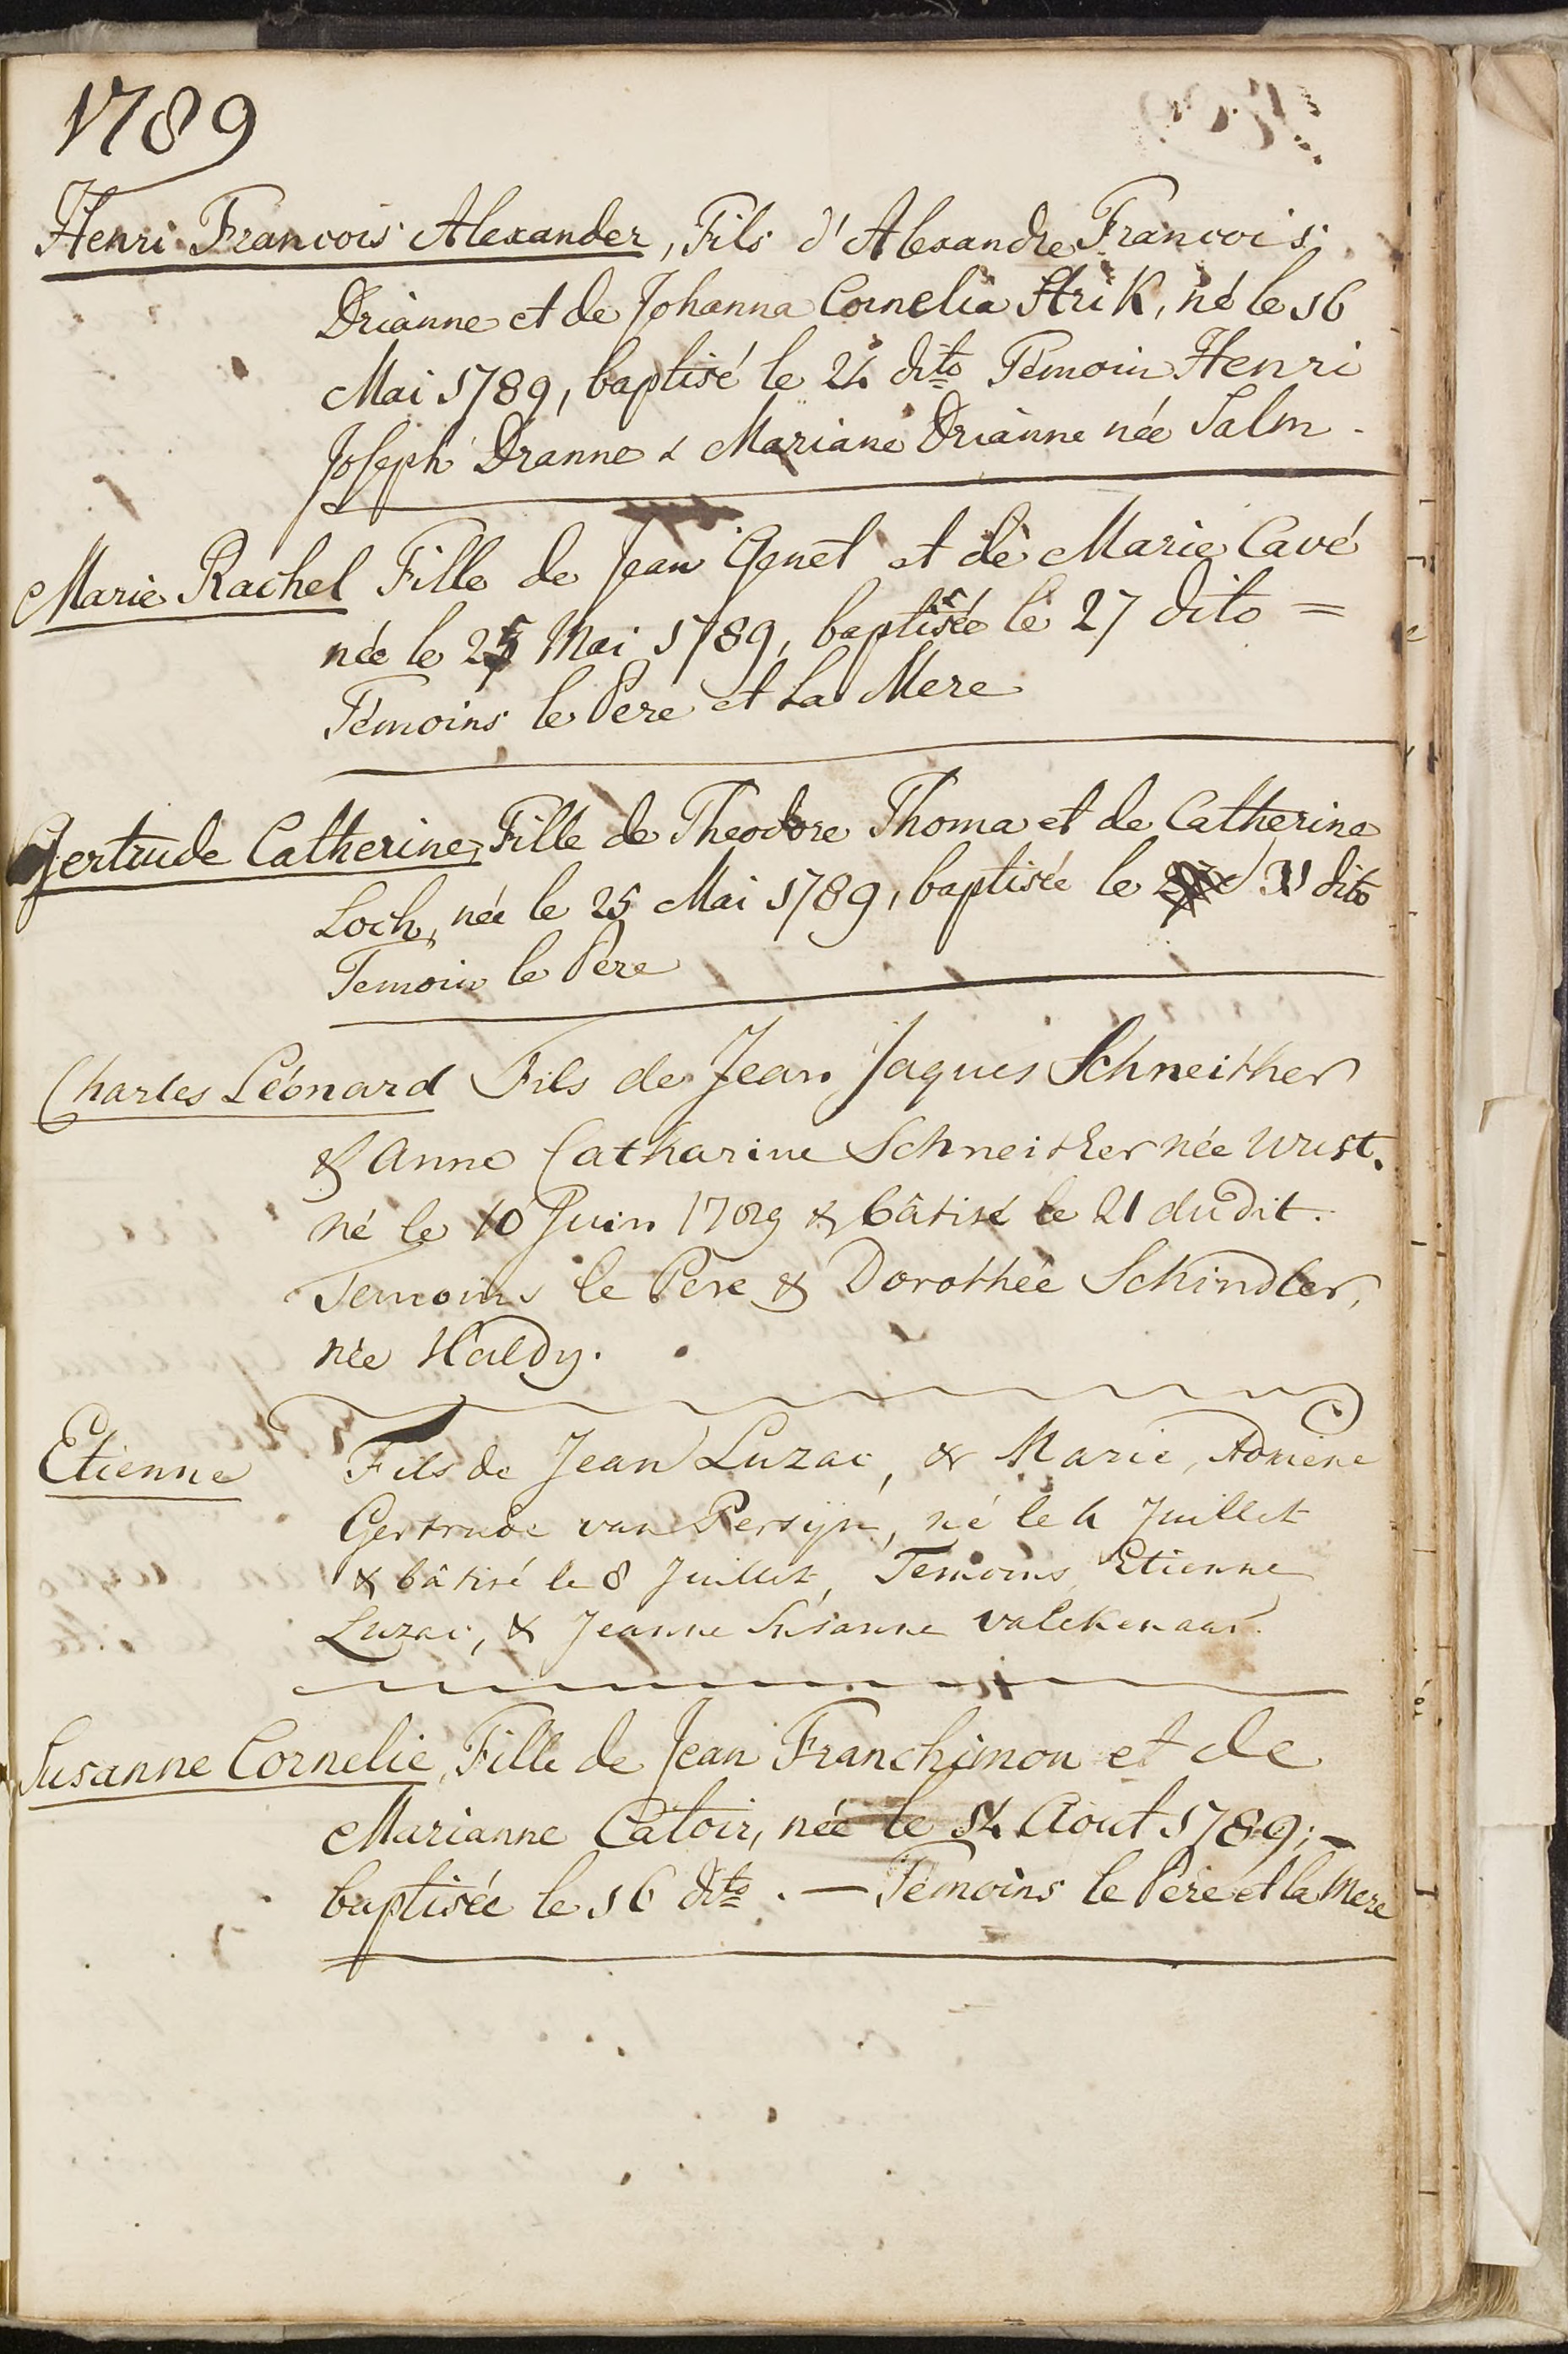 1789
Henri Francois Alexander, Fils d'Alexandre Francois
Drianne et de Johanna Cornelia Strik, né le 16
Mai 1789, baptisé le 24 dito Témoin Henri
Joseph Dranne & Mariane Drianne née Salm.
Marie Rachel Fille de Jean Genet et de Marie Cavé
née le 25 Mai 1789, baptisée le 27 dito =
Témoins le Pere et La Mere
Gertrude Catherine, Fille de Theodore Thoma et de Catherine
Loch, née le 25 Mai 1789, baptisée le 31 dito
Temoin le Pere
Charles Léonard Fils de Jean Jaques Schneither
& Anne Catharine Schneither née Wust.
né le 10 Juin 1789 & bâtisé le 21 dudit.
Temoins le Pere & Dorothée Schindler,
née Haldy.
Etienne Fils de Jean Luzac, & Marie,
Gertrude van Persijn, né le 4 Juillet
& bâtisé le 8 Juillet, Temoins Etienne
Luzac, & Jeanne Susanne Valckenaar.
Susanne Cornelie, Fille de Jean Franchimon et de
Marianne Catoir, née le 14 Aout 1789; -
baptisée le 16 dito. — Témoins le Pere et la Mere